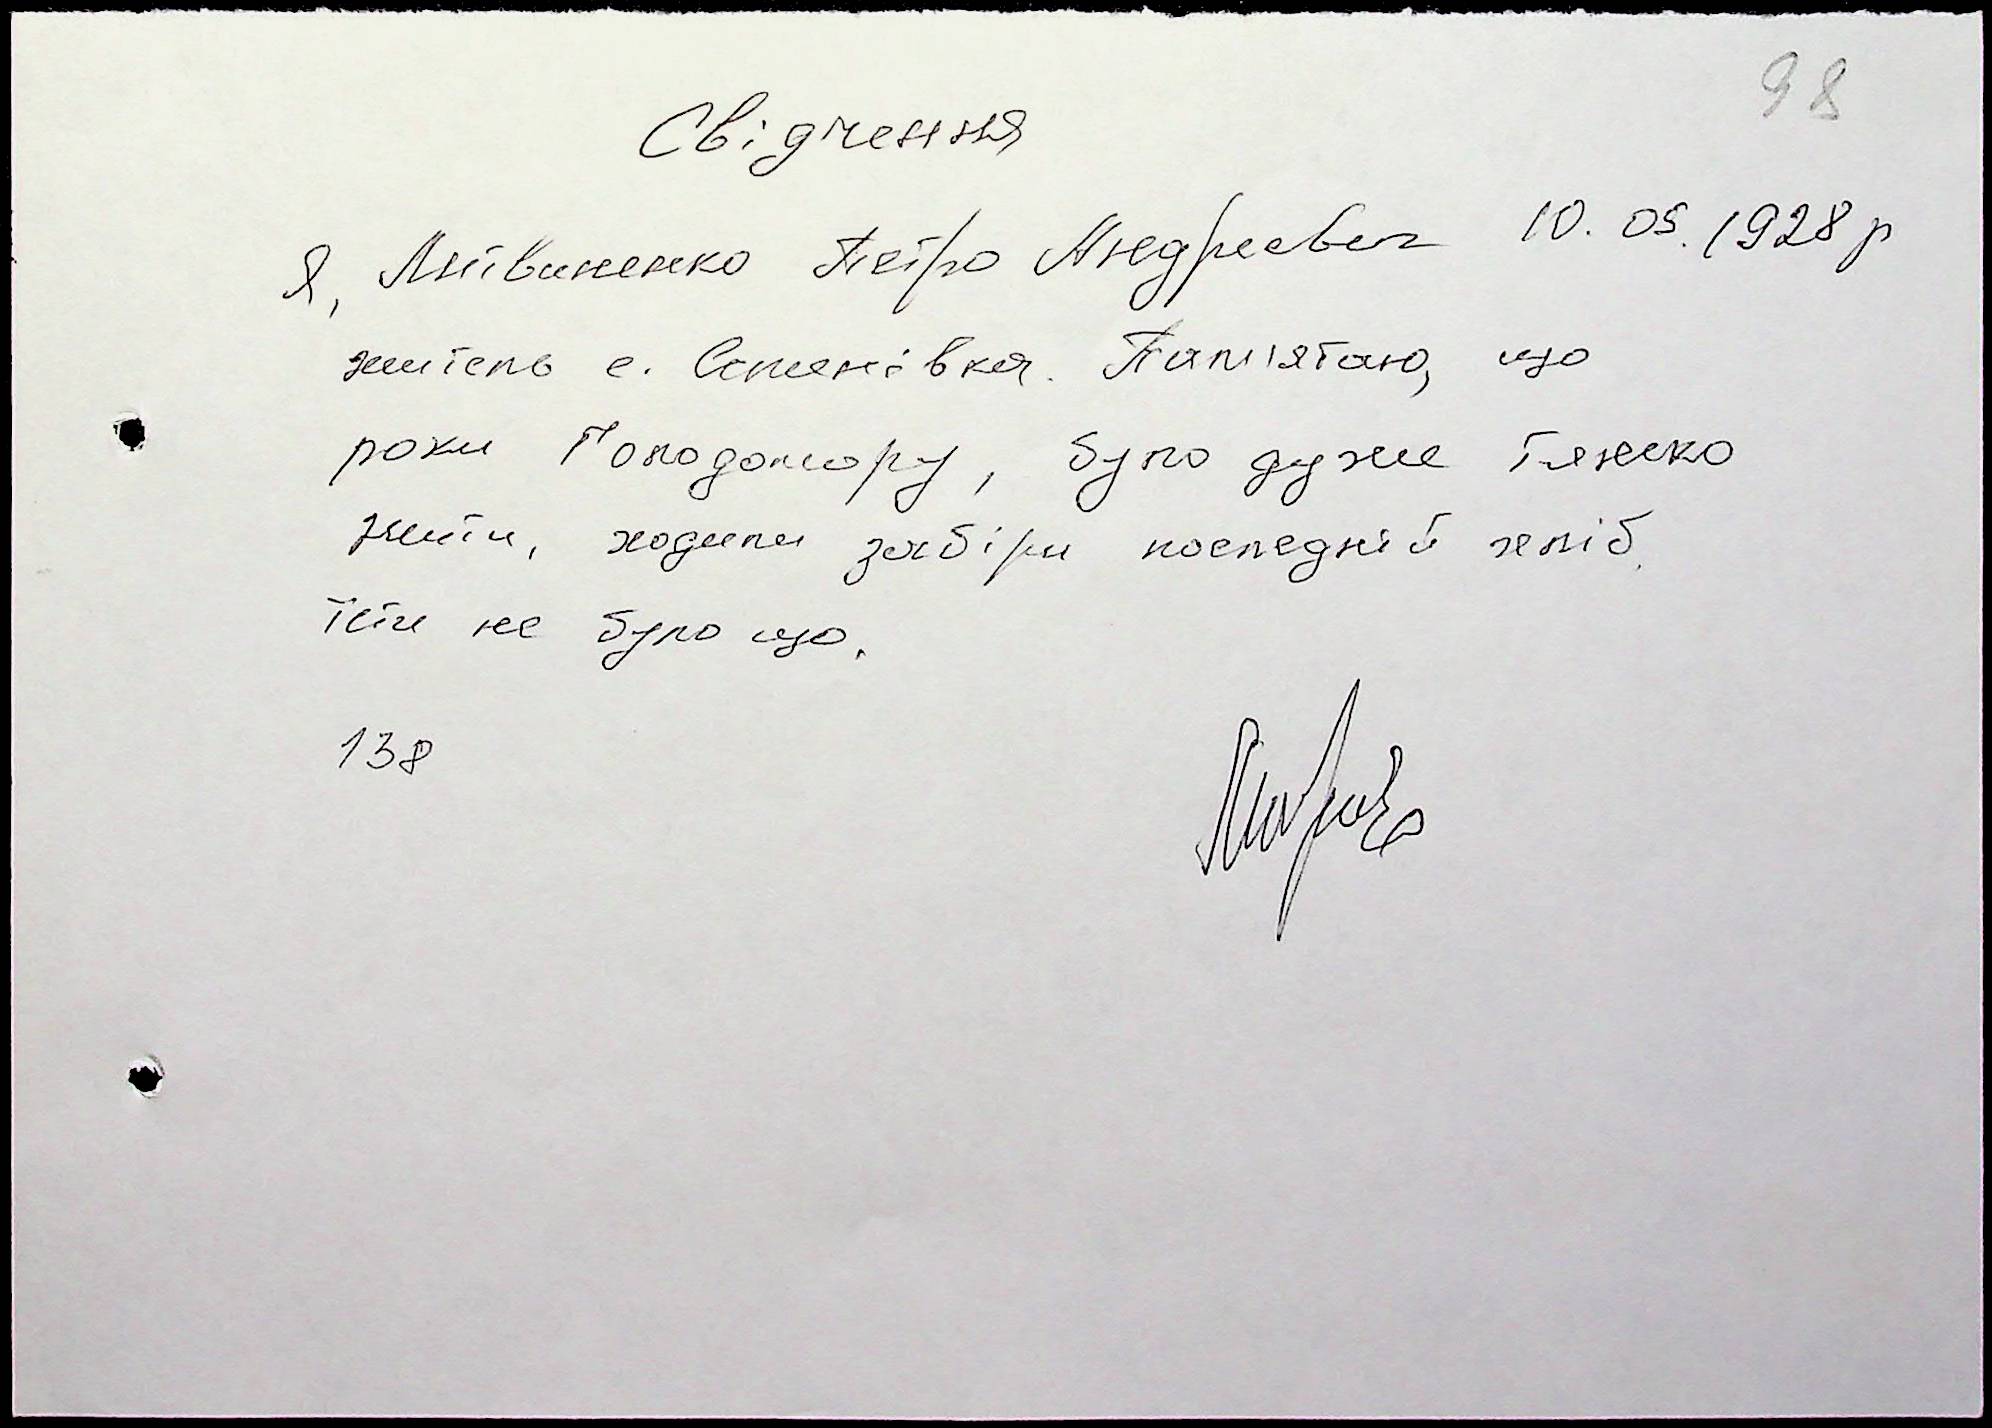 98
Свідчення
Я, Литвиненко Петро Андреевич 10. 05. 1928 р
житель с. Степанівка. Пам'ятаю, що
роки Голодомору, було дуже тяжко
жити, ходили забіри последній хліб.
їсти не було що.
138